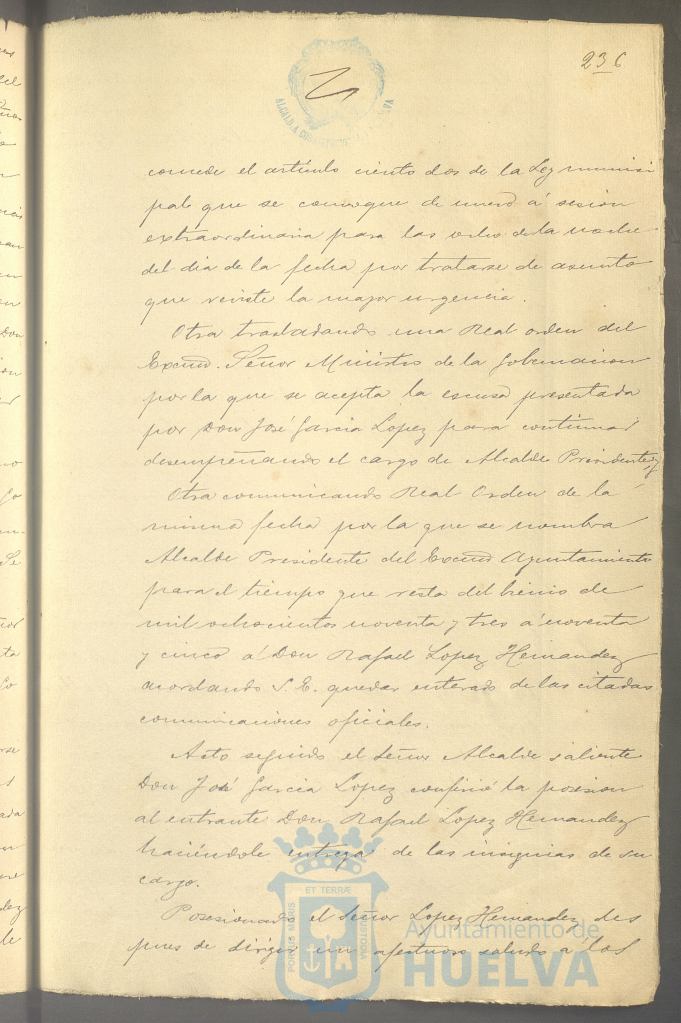 236
concede el artículo ciento dos de la Ley munici
pal que se convoque de nuevo á sesion
extraordinaria para las ocho de la noche
del dia de la fecha por tratarse de asunto
que reviste la mayor urgencia.
Otra trasladando una Real orden del
Excmo. Señor Ministro de la Gobernacion
por la que se acepta la escusa presentada
por Don José Garcia Lopez para continuar
desempeñando el cargo de Alcalde Presidente y
Otra comunicando Real Orden de la
misma fecha por la que se nombra
Alcalde Presidente del Excmo Ayuntamiento
para el tiempo que resta del bienio de
mil ochocientos noventa y tres á noventa
y cinco á Don Rafael Lopez Hernandez
acordando S. E. quedar enterado de las citadas
comunicaciones oficiales.
Acto seguido el Señor Alcalde saliente
Don José Garcia Lopez confirió la posesion
al entrante Don Rafael Lopez Hernandez
haciéndole entrega de las insignias de su
cargo.
Posesionado el Señor Lopez Hernandez des
pues de dirigir un afectuoso saludo á los
PORTUS MARIS ET TERRÆ CUSTODIA
Ayuntamiento de
HUELVA